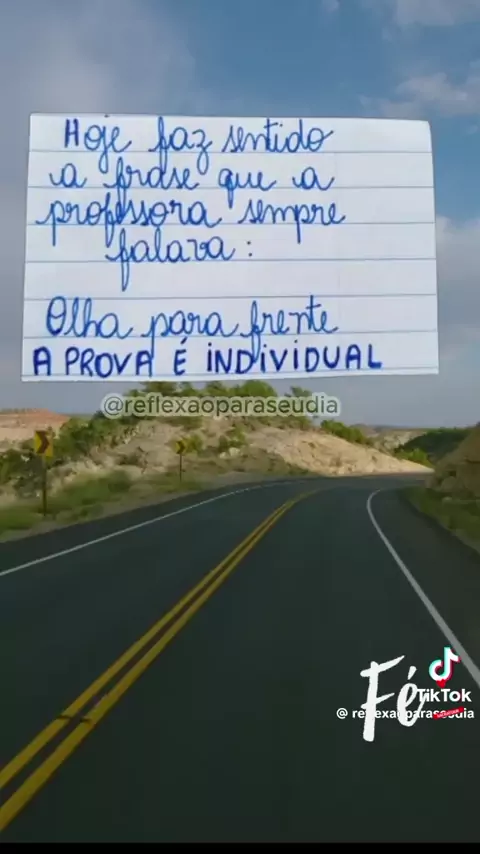 Hoje faz sentido
a frase que a
professora sempre
falava:
Olha para frente
A PROVA É INDIVIDUAL
@reflexaoparaseudia
Fé
TikTok
@ reflexaoparaseudia